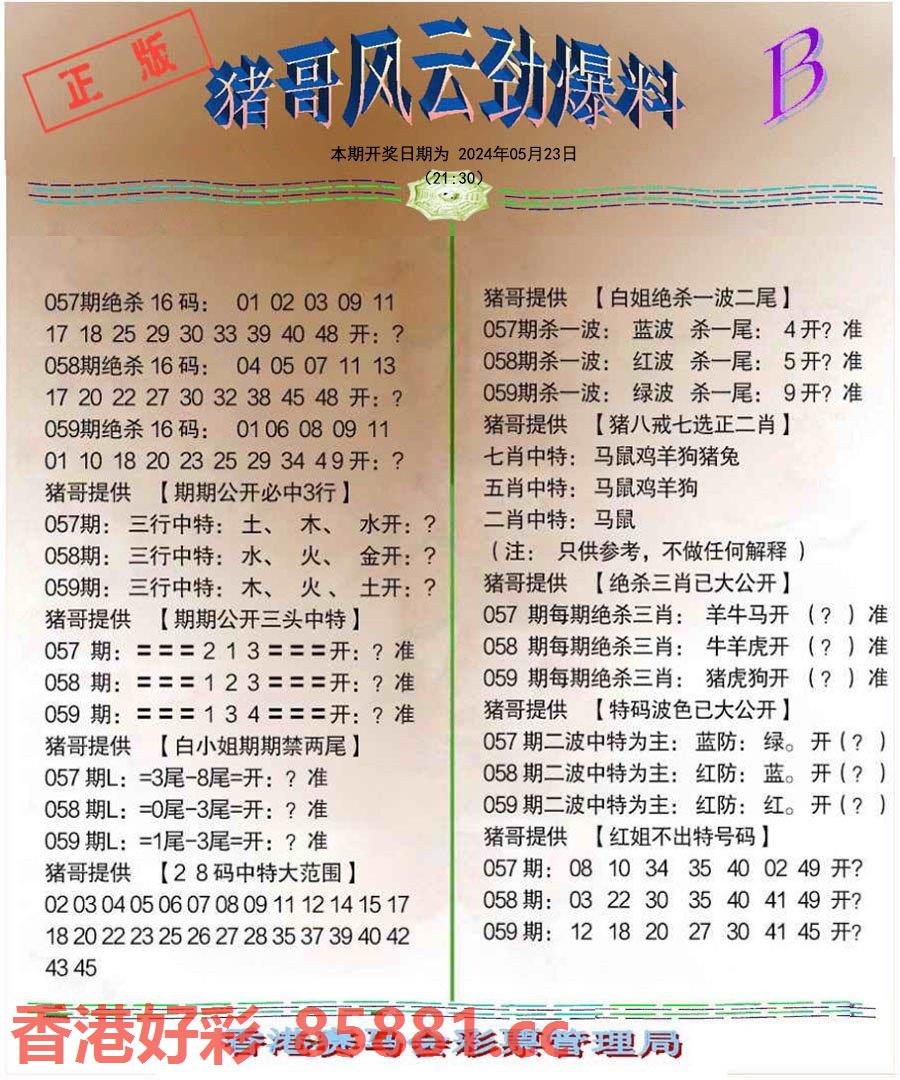 正版
猪哥风云劲爆料
B
本期开奖日期为 2024年05月23日
(21:30)
057期绝杀16码： 01 02 03 09 11
17 18 25 29 30 33 39 40 48 开：?
058期绝杀16码： 04 05 07 11 13
17 20 22 27 30 32 38 45 48 开：?
059期绝杀16码： 01 06 08 09 11
01 10 18 20 23 25 29 34 49 开：?
猪哥提供 【期期公开必中3行】
057期： 三行中特： 土、 木、 水开：?
058期： 三行中特： 水、 火、 金开：?
059期： 三行中特： 木、 火、 土开：?
猪哥提供 【期期公开三头中特】
057 期：===213===开：? 准
058 期：===123===开：? 准
059 期：===134===开：? 准
猪哥提供 【白小姐期期禁两尾】
057期L：=3尾-8尾=开：? 准
058期L：=0尾-3尾=开：? 准
059期L：=1尾-3尾=开：? 准
猪哥提供 【28码中特大范围】
02 03 04 05 06 07 08 09 11 12 14 15 17
18 20 22 23 25 26 27 28 35 37 39 40 42
43 45
猪哥提供 【白姐绝杀一波二尾】
057期杀一波： 蓝波 杀一尾： 4开? 准
058期杀一波： 红波 杀一尾： 5开? 准
059期杀一波： 绿波 杀一尾： 9开? 准
猪哥提供 【猪八戒七选正二肖】
七肖中特： 马鼠鸡羊狗猪兔
五肖中特： 马鼠鸡羊狗
二肖中特： 马鼠
（注： 只供参考，不做任何解释 ）
猪哥提供 【绝杀三肖已大公开】
057 期每期绝杀三肖： 羊牛马开 （?）准
058 期每期绝杀三肖： 牛羊虎开 （?）准
059 期每期绝杀三肖： 猪虎狗开 （?）准
猪哥提供 【特码波色已大公开】
057期二波中特为主：蓝防：绿。开(?)
058期二波中特为主：红防：蓝。开(?)
059期二波中特为主：红防：红。开(?)
猪哥提供 【红姐不出特号码】
057期：08 10 34 35 40 02 49 开?
058期：03 22 30 35 40 41 49 开?
059期：12 18 20 27 30 41 45 开?
香港好彩 85881.cc
香港赛马会彩票管理局